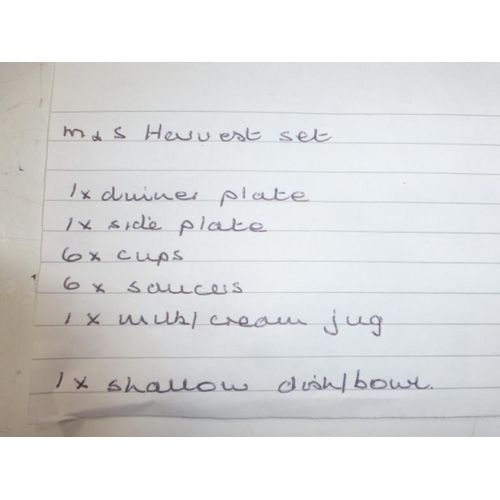 M & S Harvest set
1 x dinner plate
1 x side plate
6 x cups
6 x saucers
1 x milk/cream jug
1 x shallow dish/bowl.